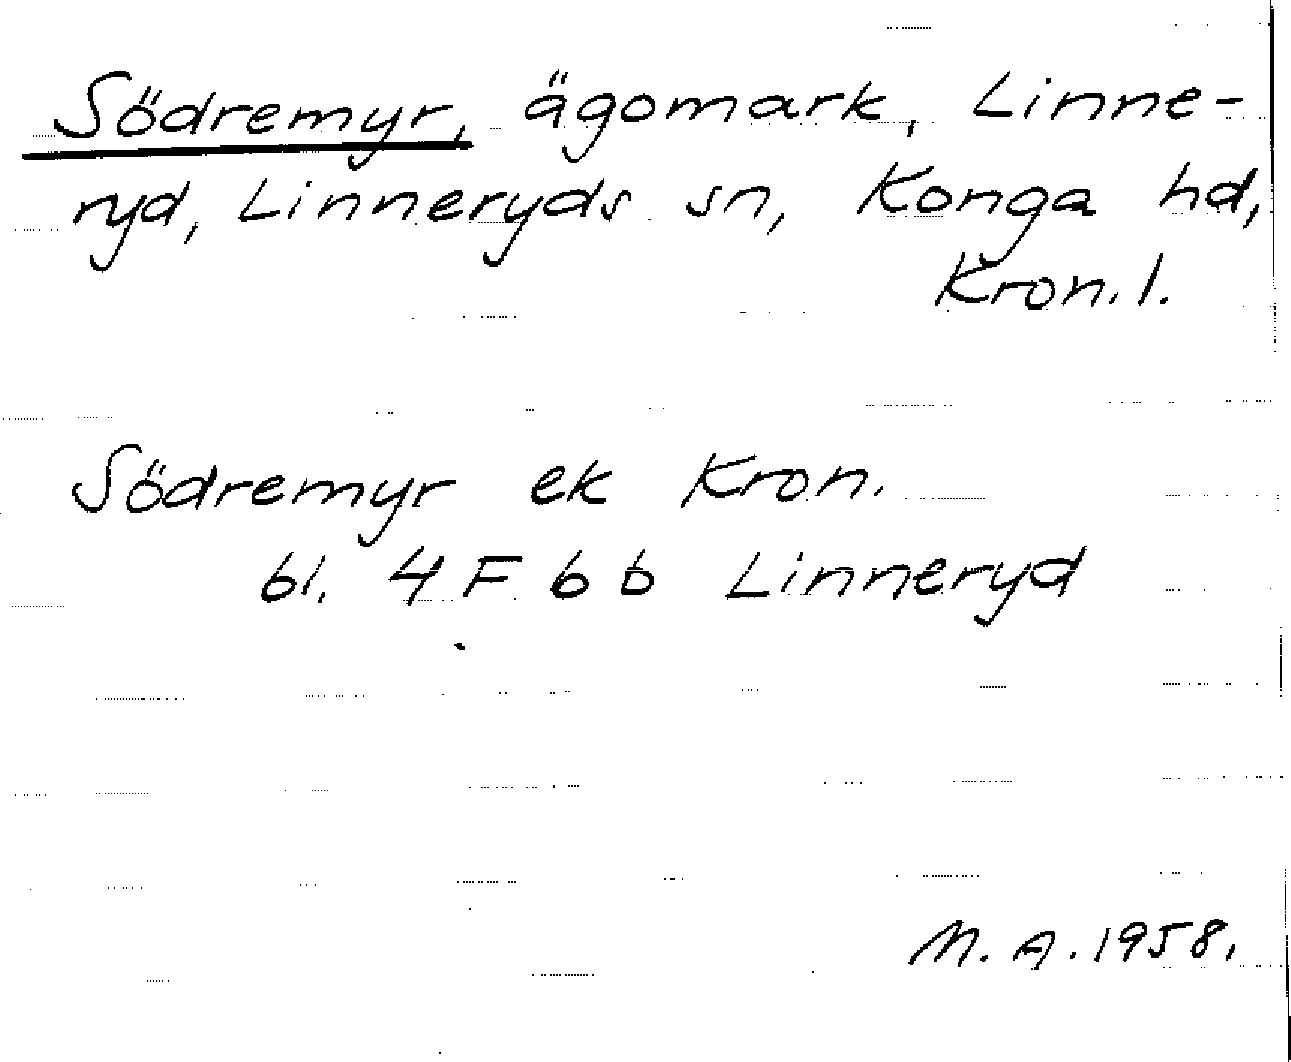 Södremyr, ägomark, Linne-
ryd, Linneryds sn, Konga hd,
Kron. l.
Södremyr ek Kron.
bl. 4 F 6 b Linneryd
M. A. 1958.